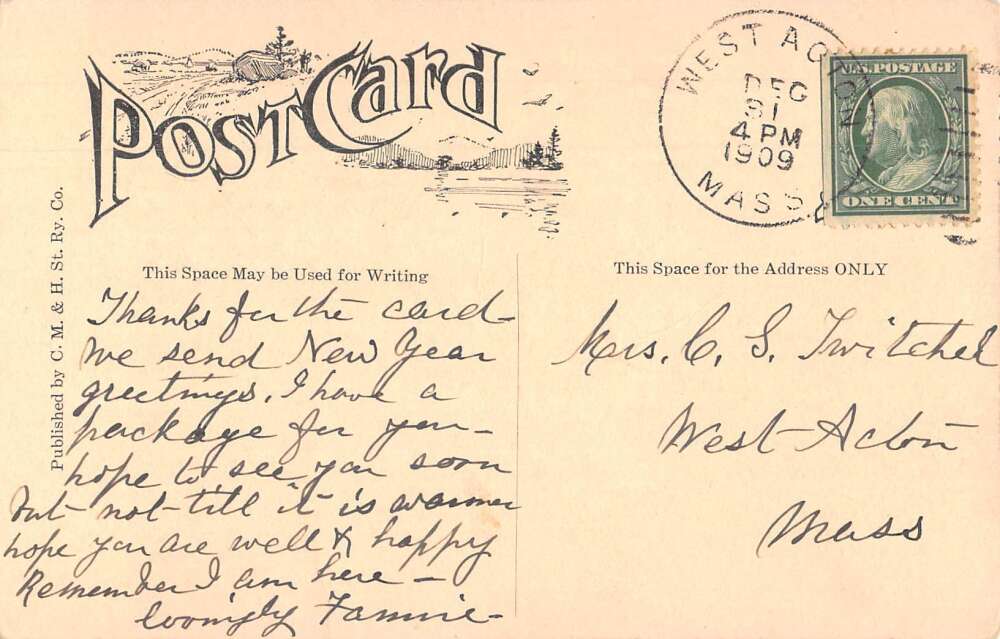 POST CARD
WEST ACTON
DEC
31
4 PM
1909
MASS.
U.S. POSTAGE
ONE CENT
Published by C. M. & H. St. Ry. Co.
This Space May be Used for Writing
This Space for the Address ONLY
Thanks for the card-
we send New Year
greetings. I have a
package for you-
hope to see you soon
but not till it is warmer
hope you are well & happy
Remember I am here -
lovingly Fannie-
Mrs. C. S. Twitchel
West-Acton
Mass